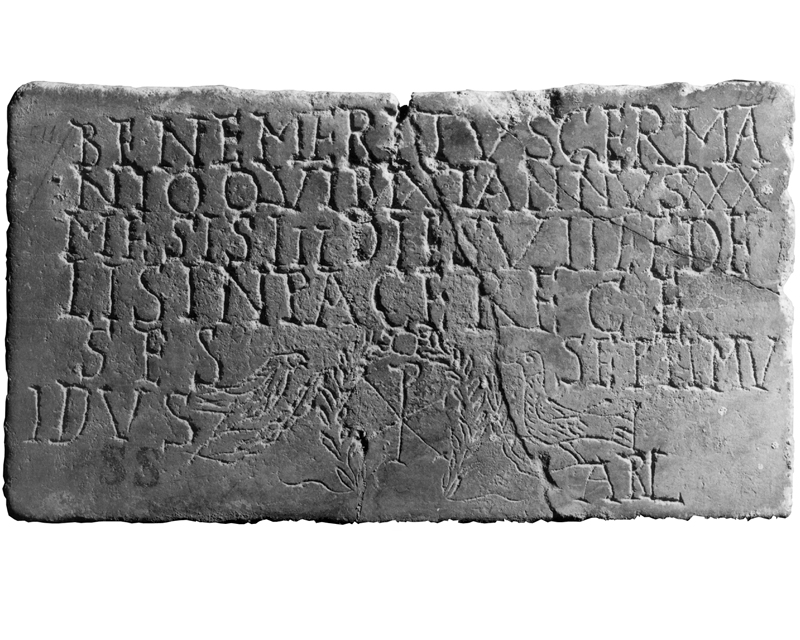 BENEMERITVSGERMA
NIOQVIBIXITANNVSXXX
MESISIIIDIENVFIDE
LISINPACERECE
SES SEPTIMV
IDVS
ABL
SS